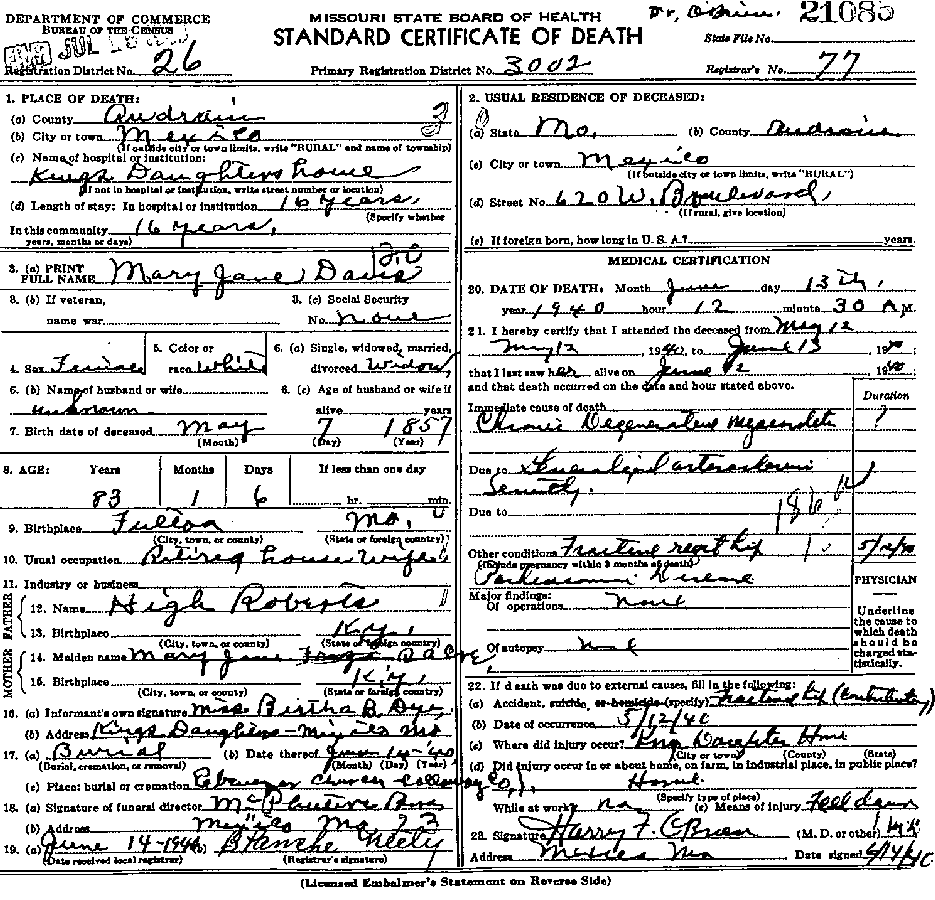 DEPARTMENT OF COMMERCE
BUREAU OF THE CENSUS
JUL
Registration District No. 26
MISSOURI STATE BOARD OF HEALTH
STANDARD CERTIFICATE OF DEATH
Primary Registration District No. 3002
Dr. O'Brien. 21085
State File No.
Registrar's No. 77
1. PLACE OF DEATH:
(a) County Audrain
(b) City or town Mexico
(If outside city or town limits, write "RURAL" and name of township)
(c) Name of hospital or institution:
Kings Daughters home
(If not in hospital or institution, write street number or location)
(d) Length of stay: In hospital or institution 16 years,
(Specify whether
In this community 16 years,
years, months or days)
2. USUAL RESIDENCE OF DECEASED:
(a) State Mo. (b) County Audrain
(c) City or town Mexico
(If outside city or town limits, write "RURAL")
(d) Street No. 620 W. Boulevard,
(If rural, give location)
(e) If foreign born, how long in U. S. A.? years.
3. (a) PRINT
FULL NAME Mary Jane Davis
3. (b) If veteran,
name war
3. (c) Social Security
No. none
4. Sex
5. Color or
race White
6. (a) Single, widowed, married,
divorced Widow,
6. (b) Name of husband or wife
unknown
6. (c) Age of husband or wife if
alive years
7. Birth date of deceased May 7 1857
(Month) (Day) (Year)
8. AGE: Years Months Days If less than one day
83 1 6 hr. min.
9. Birthplace Fulton Mo,
(City, town, or county) (State or foreign country)
10. Usual occupation Retired house wife
11. Industry or business
FATHER
12. Name High Roberts
13. Birthplace Ky,
(City, town, or county) (State or foreign country)
MOTHER
14. Maiden name Mary Jane
15. Birthplace Ky,
(City, town, or county) (State or foreign country)
16. (a) Informant's own signature Miss Birtha B. Dye,
(b) Address Kings Daughters - Mexico Mo
17. (a) Burial (b) Date thereof June 14-'40
(Burial, cremation, or removal) (Month) (Day) (Year)
(c) Place: burial or cremation Church Calloway Co,
18. (a) Signature of funeral director
(b) Address Mexico Mo
19. (a) June 14-1940 (b) Blanche Neely
(Date received local registrar) (Registrar's signature)
MEDICAL CERTIFICATION
20. DATE OF DEATH: Month June day 13th,
year 1940 hour 12 minute 30 A.M.
21. I hereby certify that I attended the deceased from May 12
May 12, 1940, to June 13 1940
that I last saw her alive on June 12 1940
and that death occurred on the date and hour stated above.
Duration
Immediate cause of death
Chronic Degenerative myocarditis ?
Due to Generalized arteriosclerosis
Senility.
Due to
186
Other conditions Fracture right hip 5/12/40
(Include pregnancy within 3 months of death)
Parkinsonian Disease
PHYSICIAN
Major findings:
Of operations None
Of autopsy
Underline
the cause to
which death
should be
charged sta-
tistically.
22. If death was due to external causes, fill in the following:
(a) Accident, suicide, or homicide (specify) Fractured hip (Contributory)
(b) Date of occurrence 5/12/40
(c) Where did injury occur? King Daughter Home
(City or town) (County) (State)
(d) Did injury occur in or about home, on farm, in industrial place, in public place?
Home
(Specify type of place)
While at work? no (e) Means of injury Fell down
23. Signature Harry F. O'Brien (M. D. or other)
Address Mexico Mo Date signed 6/14/40
(Licensed Embalmer's Statement on Reverse Side)